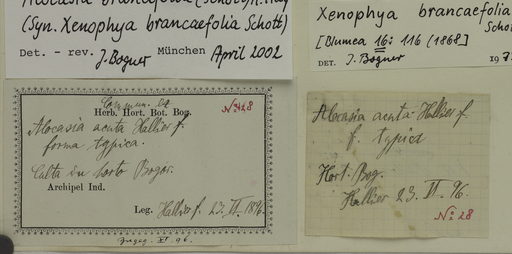 Alocasia brancaefolia (Schott) A. Hay
(Syn. Xenophya brancaefolia Schott)
Det. - rev. J. Bogner München April 2002
Xenophya brancaefolia
Schott
[Blumea 16: 116 (1868]
DET. J. Bogner 197
Commun. ex
Herb. Hort. Bot. Bog.
No 28
Alocasia acuta Hallier f.
forma typica.
Culta in horto Bogor.
Archipel Ind.
Leg. Hallier f. 23. VI. 1896.
XI 96.
Alocasia acuta Hallier f.
f. typica
Hort. Bog.
Hallier 23. VI. 96.
No 28